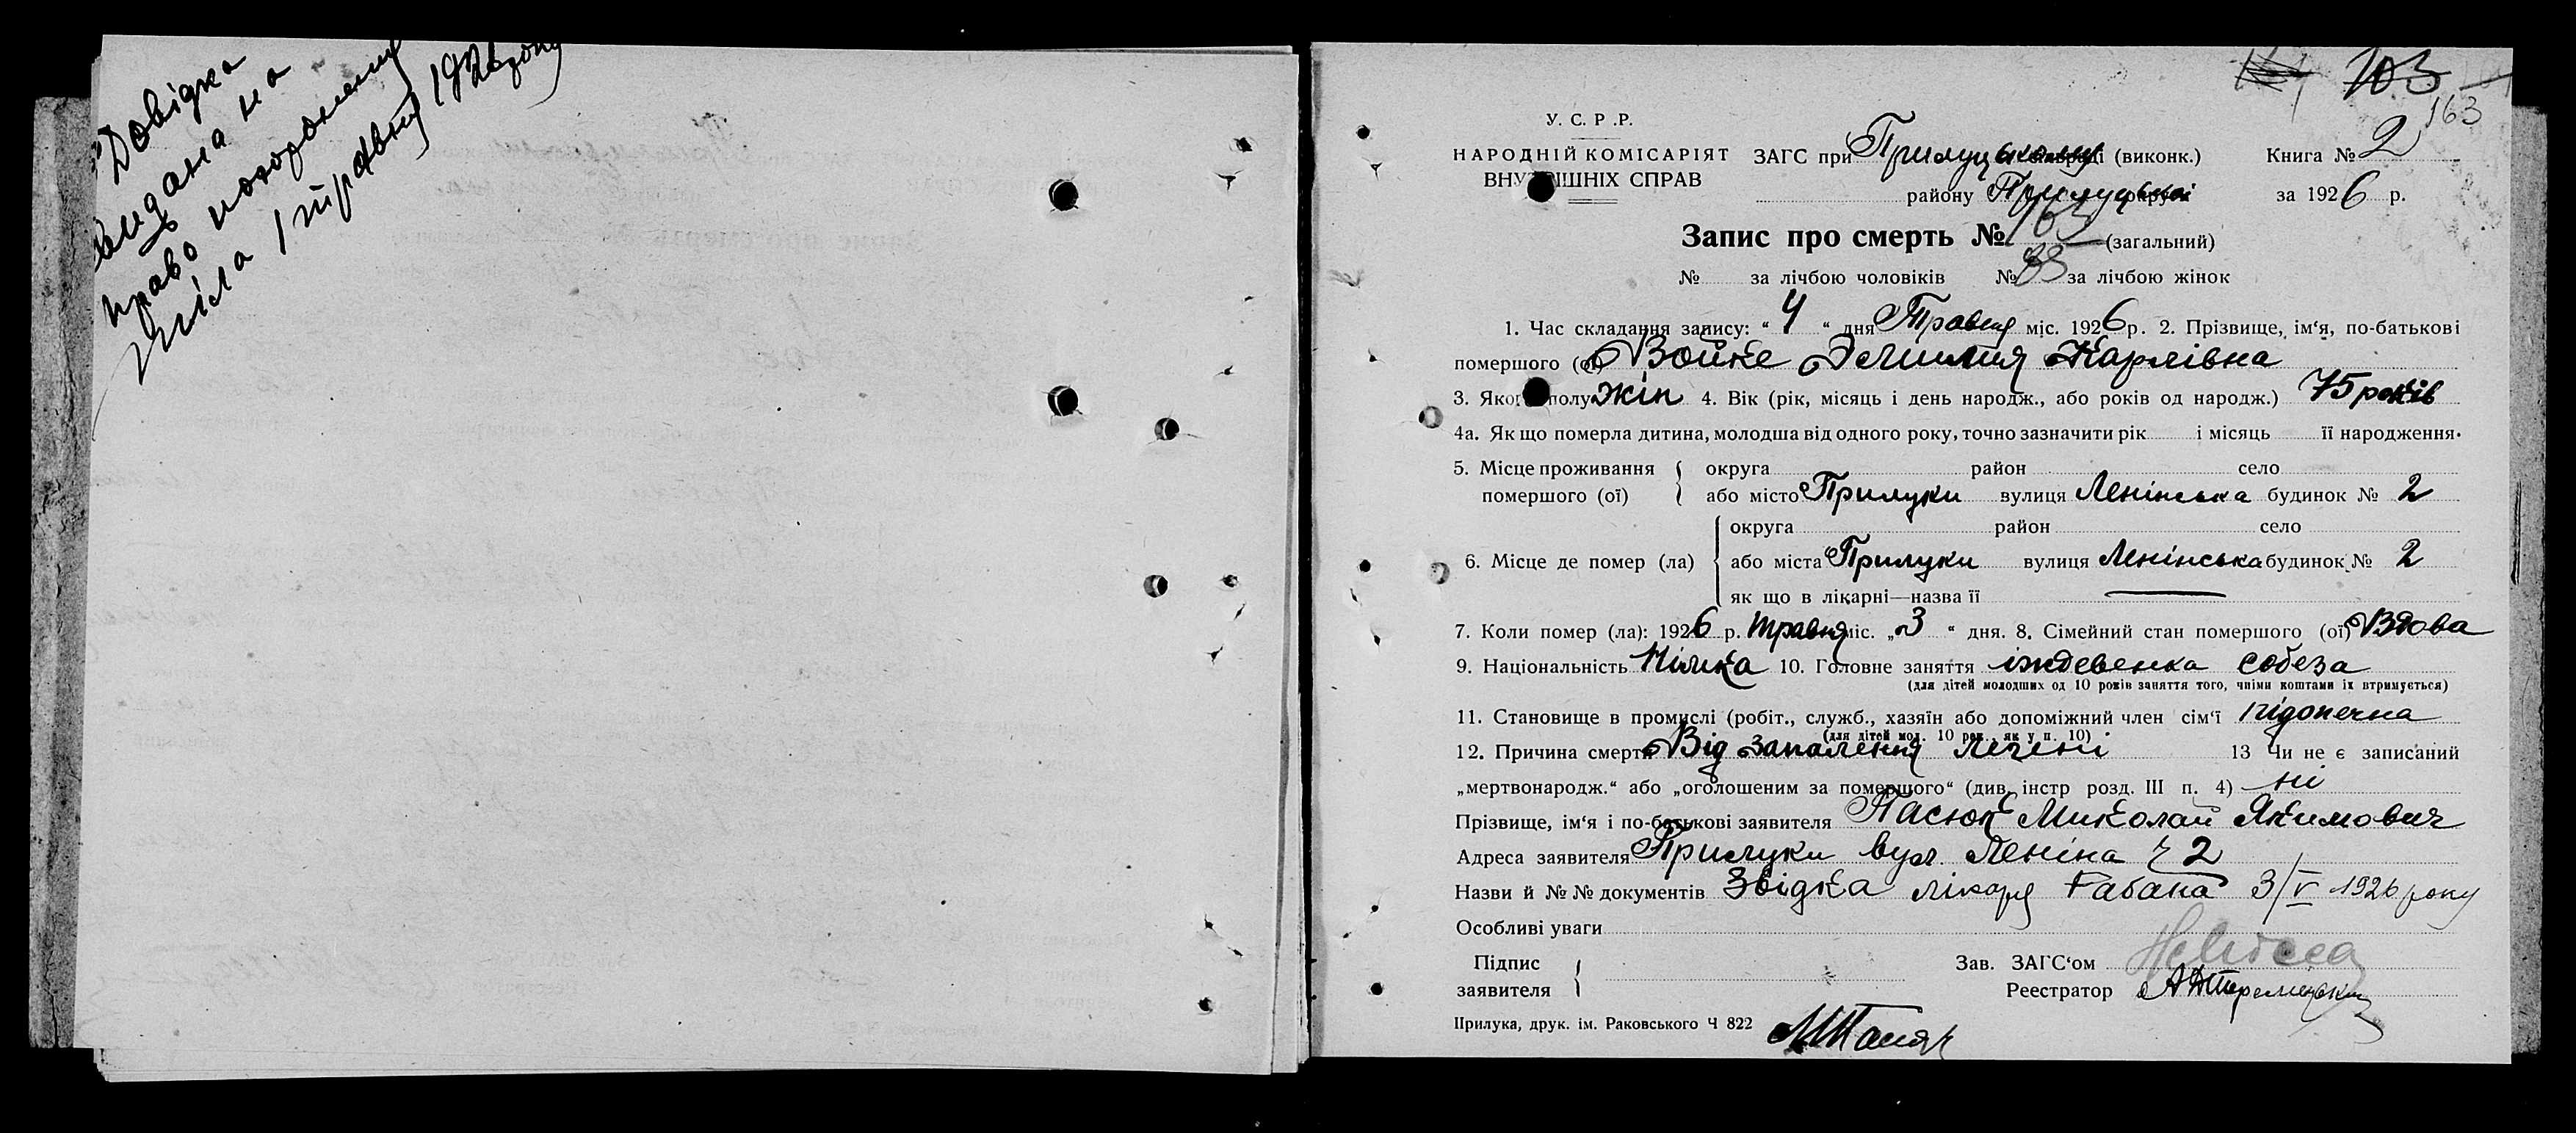 Довідка
видана на
право похоронення
тіла 1 травня 1926 року
103
163
У. С. Р .Р.
НАРОДНІЙ КОМІСАРІЯТ
ВНУ ІШНІХ СПРАВ
ЗАГС при Прилуцькому (виконк.) Книга № 2
району Прилуцької за 1926 р.
Запис про смерть № 163 (загальний)
№ за лічбою чоловіків № 83 за лічбою жінок
1. Час складання запису: “ 4 “ дня Травня міс. 1926 р. 2. Прізвище, ім‘я, по-батькові
помершого (ої) Войке Эмилия Карлівна
3. Яко полу жін 4. Вік (рік, місяць і день народж., або років од народж.) 75 років
4а. Як що померла дитина, молодша від одного року, точно зазначити рік і місяць її народження.
5. Місце проживання помершого (ої) округа район село
або місто Прилуки вулиця Ленінська будинок № 2
6. Місце де помер (ла) округа район село
або міста Прилуки вулиця Ленінська будинок № 2
як що в лікарні—назва її
7. Коли помер (ла): 1926 р. травня міс. „3 “ дня. 8. Сімейний стан помершого (ої) Вдова
9. Національність Німка 10. Головне заняття іждевенка собеза
(для дітей молодших од 10 років заняття того, чиїми коштами їх втримується)
11. Становище в промислі (робіт., служб., хазяїн або допоміжний член сім‘ї підопечна
(для дітей мол. 10 рок., як у п. 10)
12. Причина смерти Від запалення легені 13 Чи не є записаний
„мертвонародж.“ або „оголошеним за помершого“ (див. інстр розд. III п. 4) ні
Прізвище, ім‘я і по-батькові заявителя Пасюк Миколай Якимович
Адреса заявителя Прилуки вул. Леніна ч 2
Назви й №№ документів Звідка лікаря Габана 3/V 1926 року
Особливі уваги
Підпис
заявителя
Зав. ЗАГС‘ом
Реестратор
Прилука, друк. ім. Раковського Ч 822